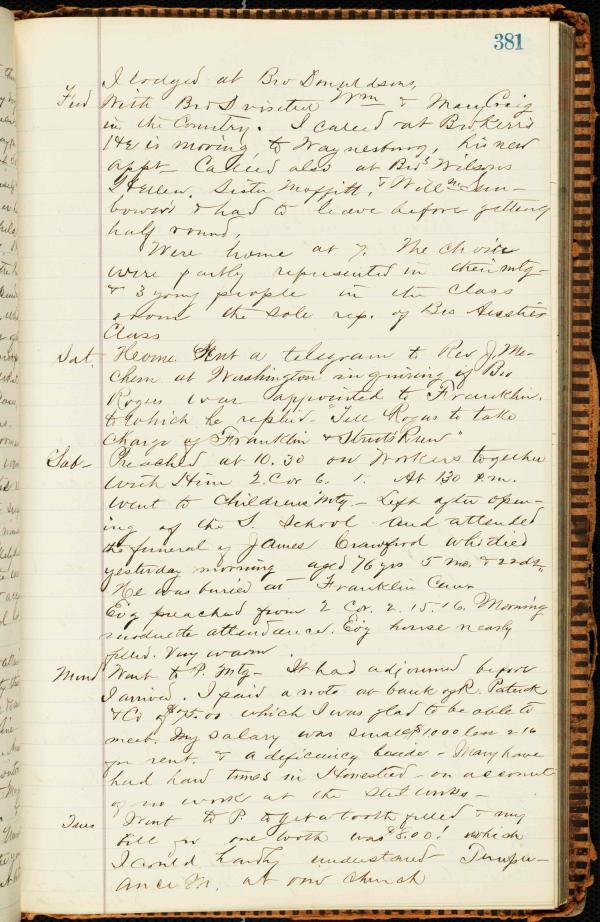 381
I lodged at Bro Donaldsons,
Frid With Bro D visited Wm & Mary Craig
in the Country. I called at Bro Kerr's
He is moving to Waynesburg, his new
appt. Called also at Bros Wilsons
Hellen, Sister Moffitt, & Will Sun-
bower's & had to leave before getting
half round.
Were home at 7. The choir
were partly represented in their mtg-
& 3 young people in the Class
room the sole rep. of Bro
Class
Sat. Home Sent a telegram to Rev J. Me-
chem at Washington inquiring if Bro
Rogers was appointed to Franklin.
to which he replied - "Tell Rogers to take
Charge of Franklin & Struts Run"
Sab- Preached at 10.30 on Workers together
with Him 2 Cor 6. 1. At 1 30 P.m.
went to Childrens Mtg - Left after open-
ing of the S. School and attended
the funeral of James Crawford who died
yesterday morning aged 76 yrs 5 mo. & 22 ds,
He was buried at Franklin Cem
Ev'g preached from 2 Cor. 2. 15.16. Morning
moderate attendance. Ev'g house nearly
filled. Very warm.
Mond Went to P. Mtg - It had adjourned before
I arrived. I paid a note at bank of R. Patrick
& Co of $75.00 which I was glad to be able to
meet. My salary was small $1000 less 216
for rent, & a deficiency beside - Many have
had hard times in Homestead - on account
of no work at the Steel works -
Tues Went to P. to get a tooth filled & my
bill for one tooth was $8.00! which
I could hardly understand Temper-
ance M. at our church